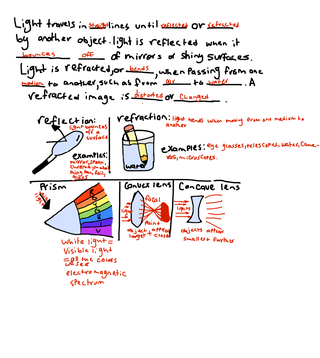 Light travels in straight lines until reflected or refracted
by another object. light is reflected when it
bounces off of mirrors or shiny surfaces.
Light is refracted, or bends, when passing from one
medium to another, such as from air to water. A
refracted image is distorted or changed.
reflection:
light bounces
off a
surface
examples:
mirror, spoon,
refraction:
light bends when moving from one medium to
another
water
examples: eye glasses, telescopes, water, came-
ras, microscopes.
Prism
white light
R
O
Y
G
B
I
V
White light =
Visible light
= all the colors
we see
electromagnetic
spectrum
Convex lens
light
focal
Point
object appears
larger + closer
Concave lens
light
objects appear
smaller + farther